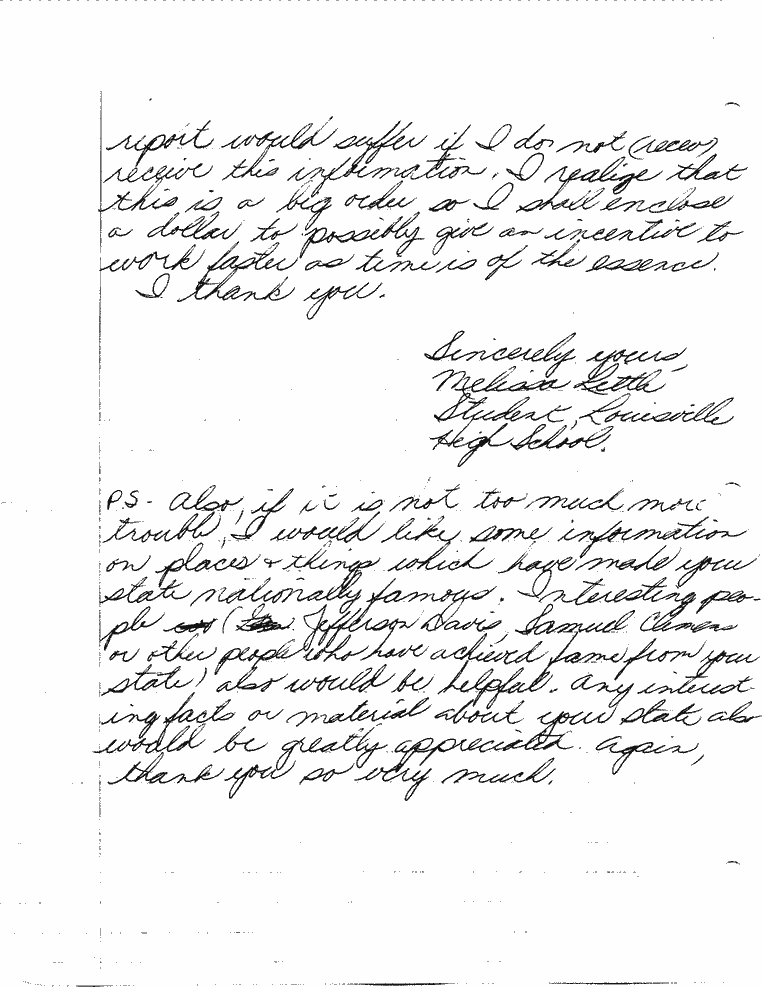 report would suffer if I do not (receiv)
receive this information. I realize that
this is a big order so I shall enclose
a dollar to possibly give an incentive to
work faster as time is of the essence.
I thank you.
Sincerely yours,
Melissa Little
Student, Louisville
High School.
P.S. - Also, if it is not too much more
trouble, I would like some information
on places & things which have made your
state nationally famous. Interesting peo-
ple (Jefferson Davis, Samuel Clemens
or other people who have achieved fame from your
state) also would be helpful. Any interest-
ing facts or material about your state also
would be greatly appreciated. Again,
thank you so very much.